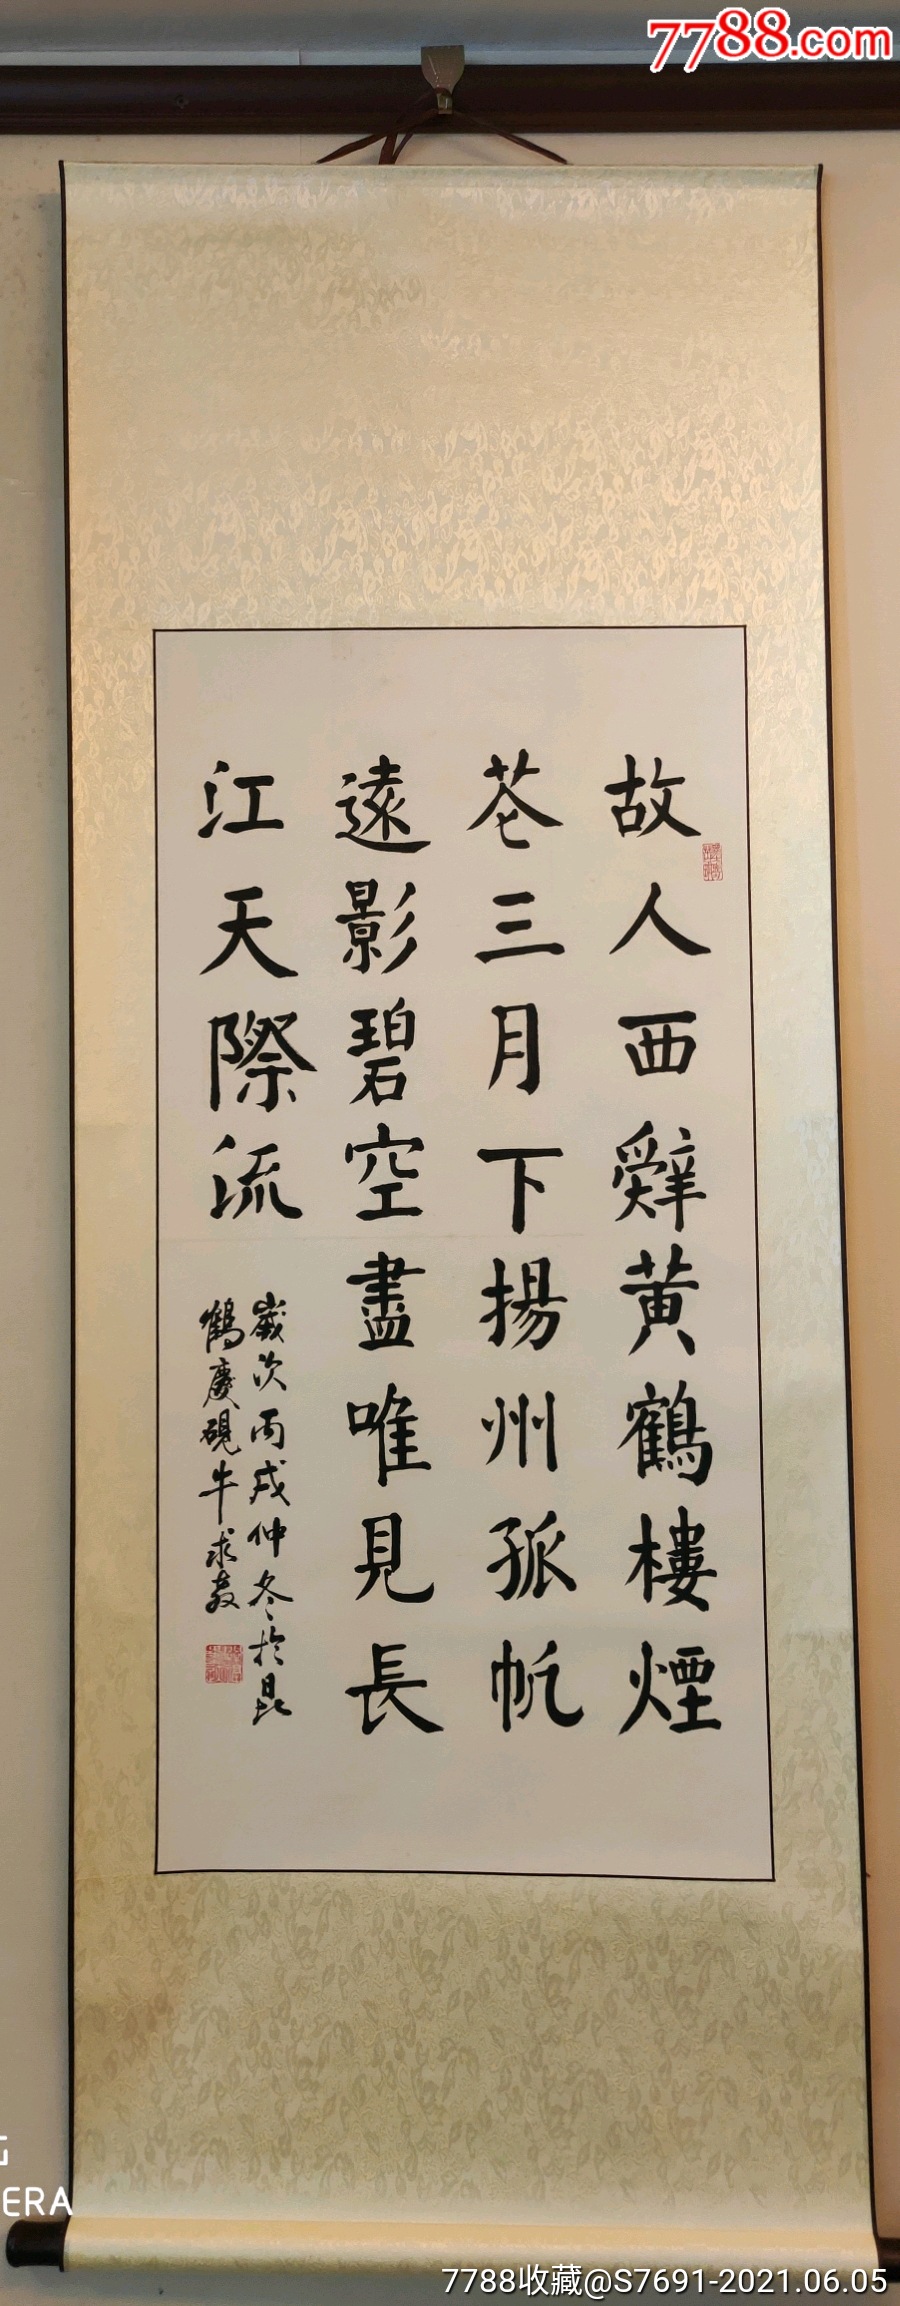 7788.com
故人西辭黄鶴樓煙
花三月下揚州孤帆
遠影碧空盡唯見長
江天際流
歲次丙戌仲冬於昆
鶴慶硯牛求教
ERA
7788收藏@S7691-2021.06.05